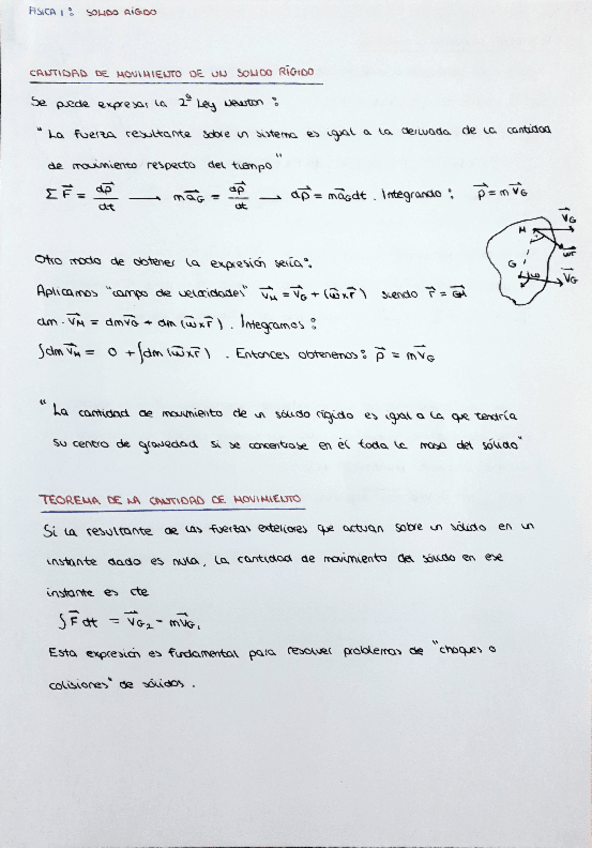 FISICA 1: SOLIDO RÍGIDO
CANTIDAD DE MOVIMIENTO DE UN SOLIDO RÍGIDO
Se puede expresar la 2ª Ley Newton:
"La fuerza resultante sobre un sistema es igual a la derivada de la cantidad
de movimiento respecto del tiempo"
Σ F⃗ = dp⃗/dt → ma⃗G = dp⃗/dt → dp⃗ = ma⃗G dt. Integrando: p⃗ = m v⃗G
V⃗G
M
ωr
G
ω
V⃗G
Otro modo de obtener la expresión sería:
Aplicamos "campo de velocidades" V⃗M = V⃗G + (ω⃗ x r⃗) siendo r⃗ = GM
dm · V⃗M = dm v⃗G + dm (ω⃗ x r⃗). Integramos:
∫dm V⃗M = 0 + ∫dm (ω⃗ x r⃗). Entonces obtenemos: p⃗ = m v⃗G
"La cantidad de movimiento de un sólido rígido es igual a la que tendría
su centro de gravedad si se concentrase en él toda la masa del sólido"
TEOREMA DE LA CANTIDAD DE MOVIMIENTO
Si la resultante de las fuerzas exteriores que actúan sobre un sólido en un
instante dado es nula, la cantidad de movimiento del sólido en ese
instante es cte
∫F⃗ dt = V⃗G₂ - mV⃗G₁
Esta expresión es fundamental para resolver problemas de "choques o
colisiones" de sólidos.